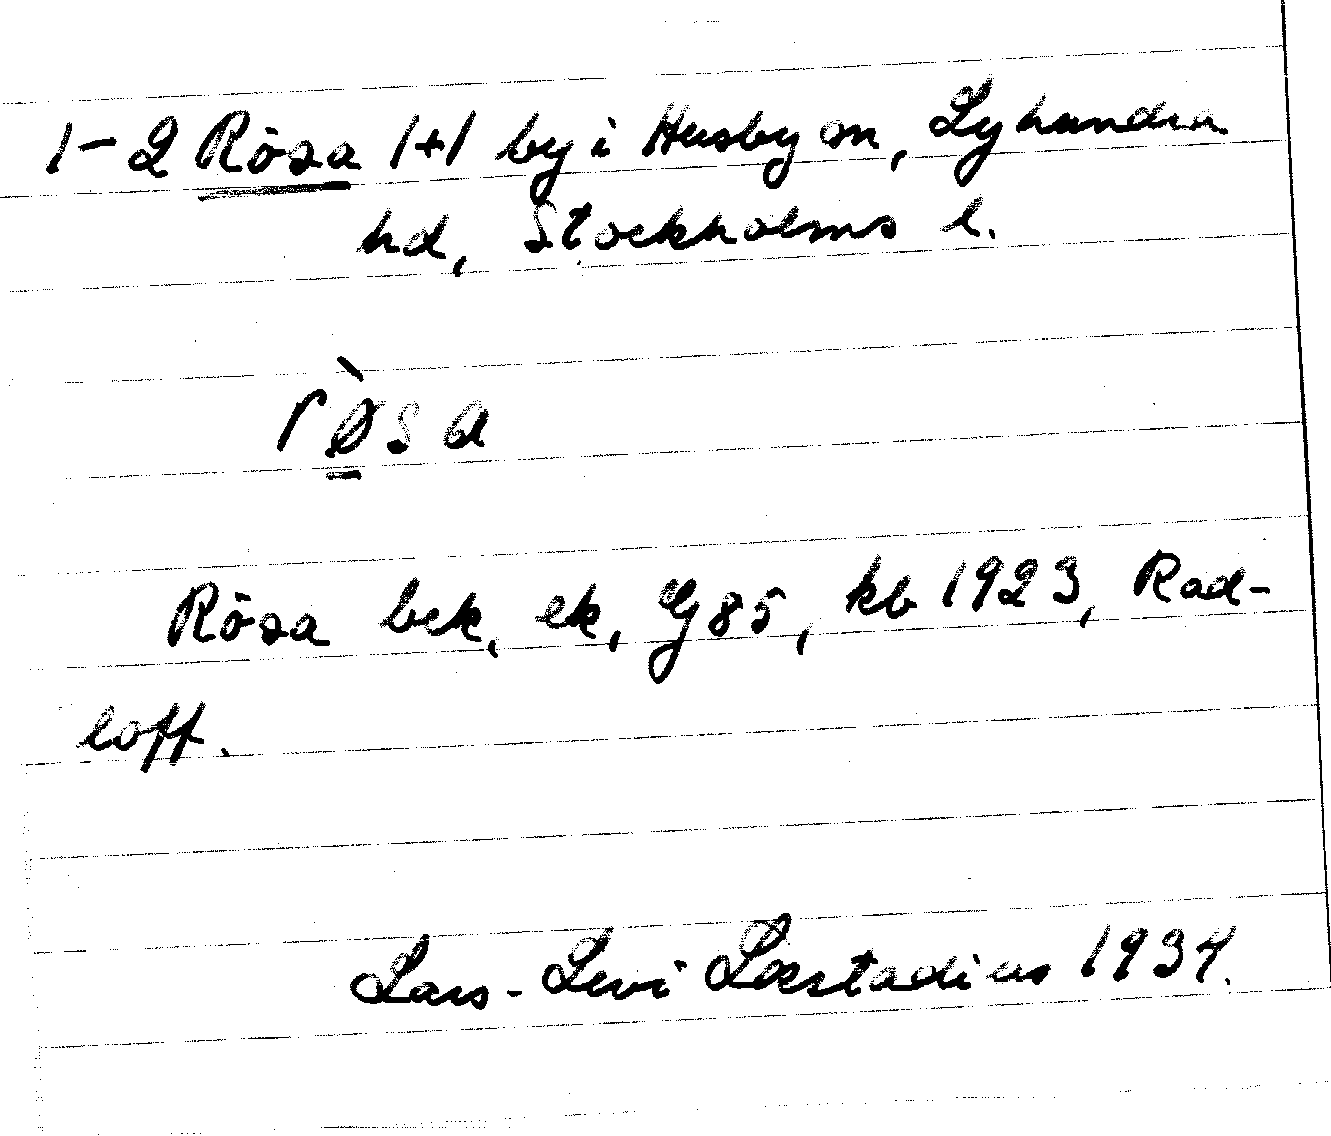 1-2 Rösa 1+1 by i Husby sn, Lyhundra
hd, Stockholms l.
rø̀sa
Rösa bek, ek, Gj 85, kb 1923, Rad-
loff.
Lars-Levi Læstadius 1934.